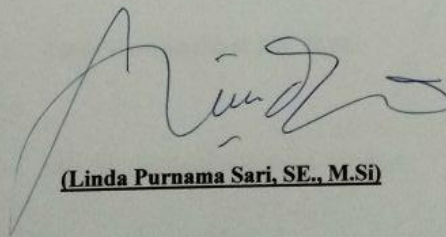 (Linda Purnama Sari, SE., M.Si)